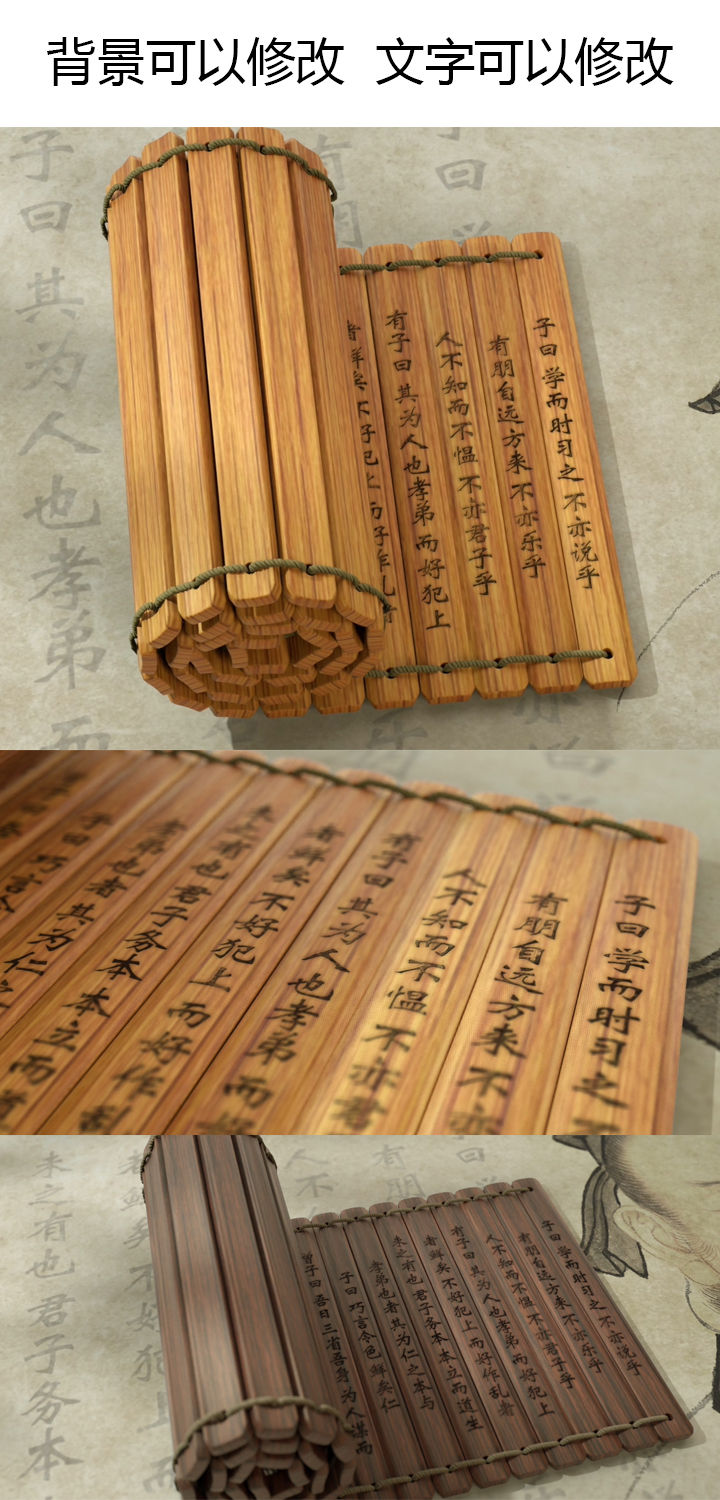 背景可以修改 文字可以修改
子曰 学而时习之 不亦说乎
有朋自远方来 不亦乐乎
人不知而不愠 不亦君子乎
有子曰 其为人也孝弟 而好犯上
者鲜矣 不好犯上 而好作乱者
子曰
其为人也孝弟 而
子曰 学而时习之
有朋自远方来 不亦
人不知而不愠 不亦君
有子曰 其为人也孝弟 而好
者鲜矣 不好犯上 而好作乱
未之有也 君子务本 本立而道
孝弟也者 其为仁
子曰 巧言令
子曰 学而时习之 不亦说乎
有朋自远方来 不亦乐乎
人不知而不愠 不亦君子乎
有子曰 其为人也孝弟 而好犯上
者鲜矣 不好犯上 而好作乱者
未之有也 君子务本 本立而道生
孝弟也者 其为仁之本与
子曰 巧言令色 鲜矣仁
曾子曰 吾日三省吾身 为人谋而
有朋
人不
者鲜矣 不好犯上
未之有也 君子务本